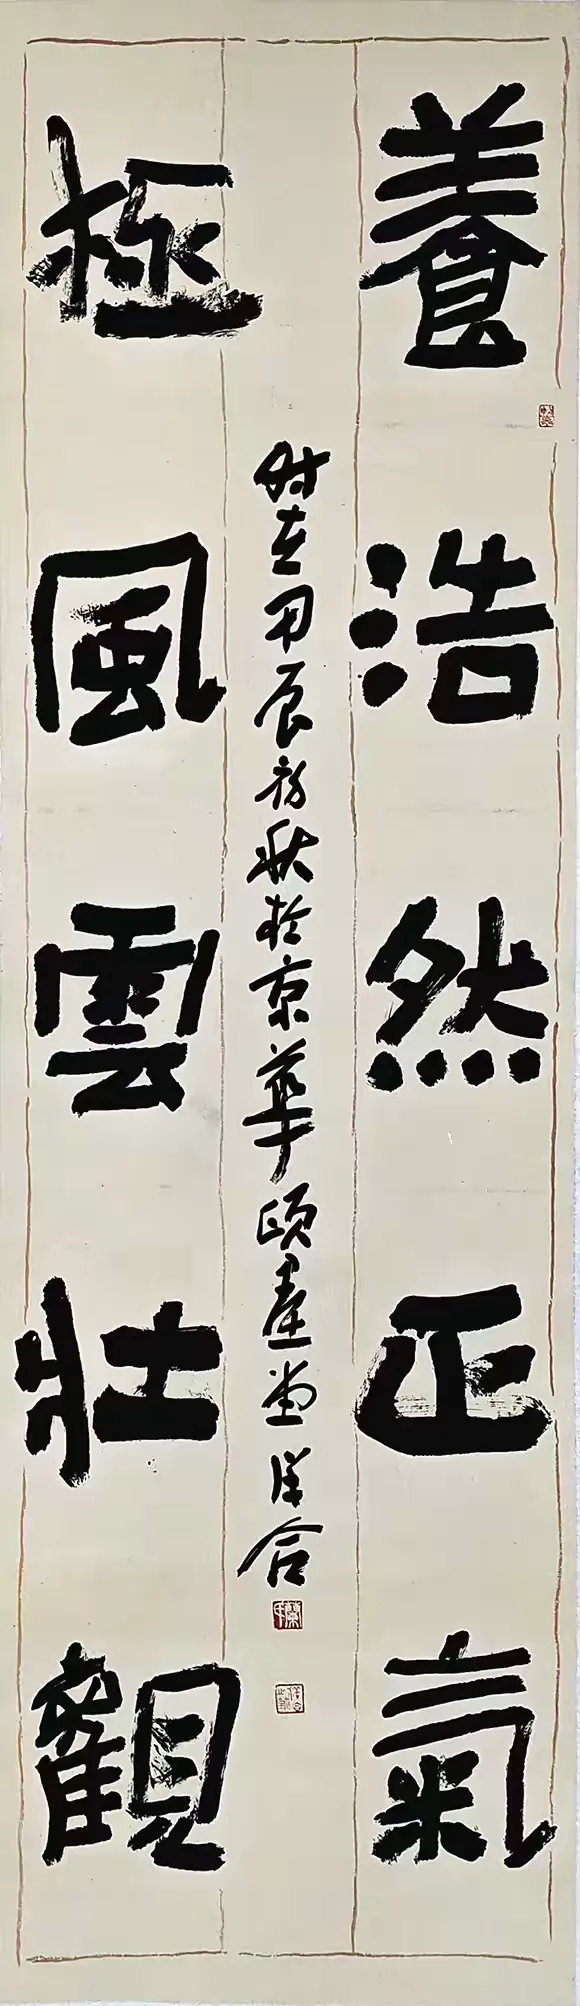 養浩然正氣
極風雲壯觀
时在甲辰初秋於京華頌堂祥合